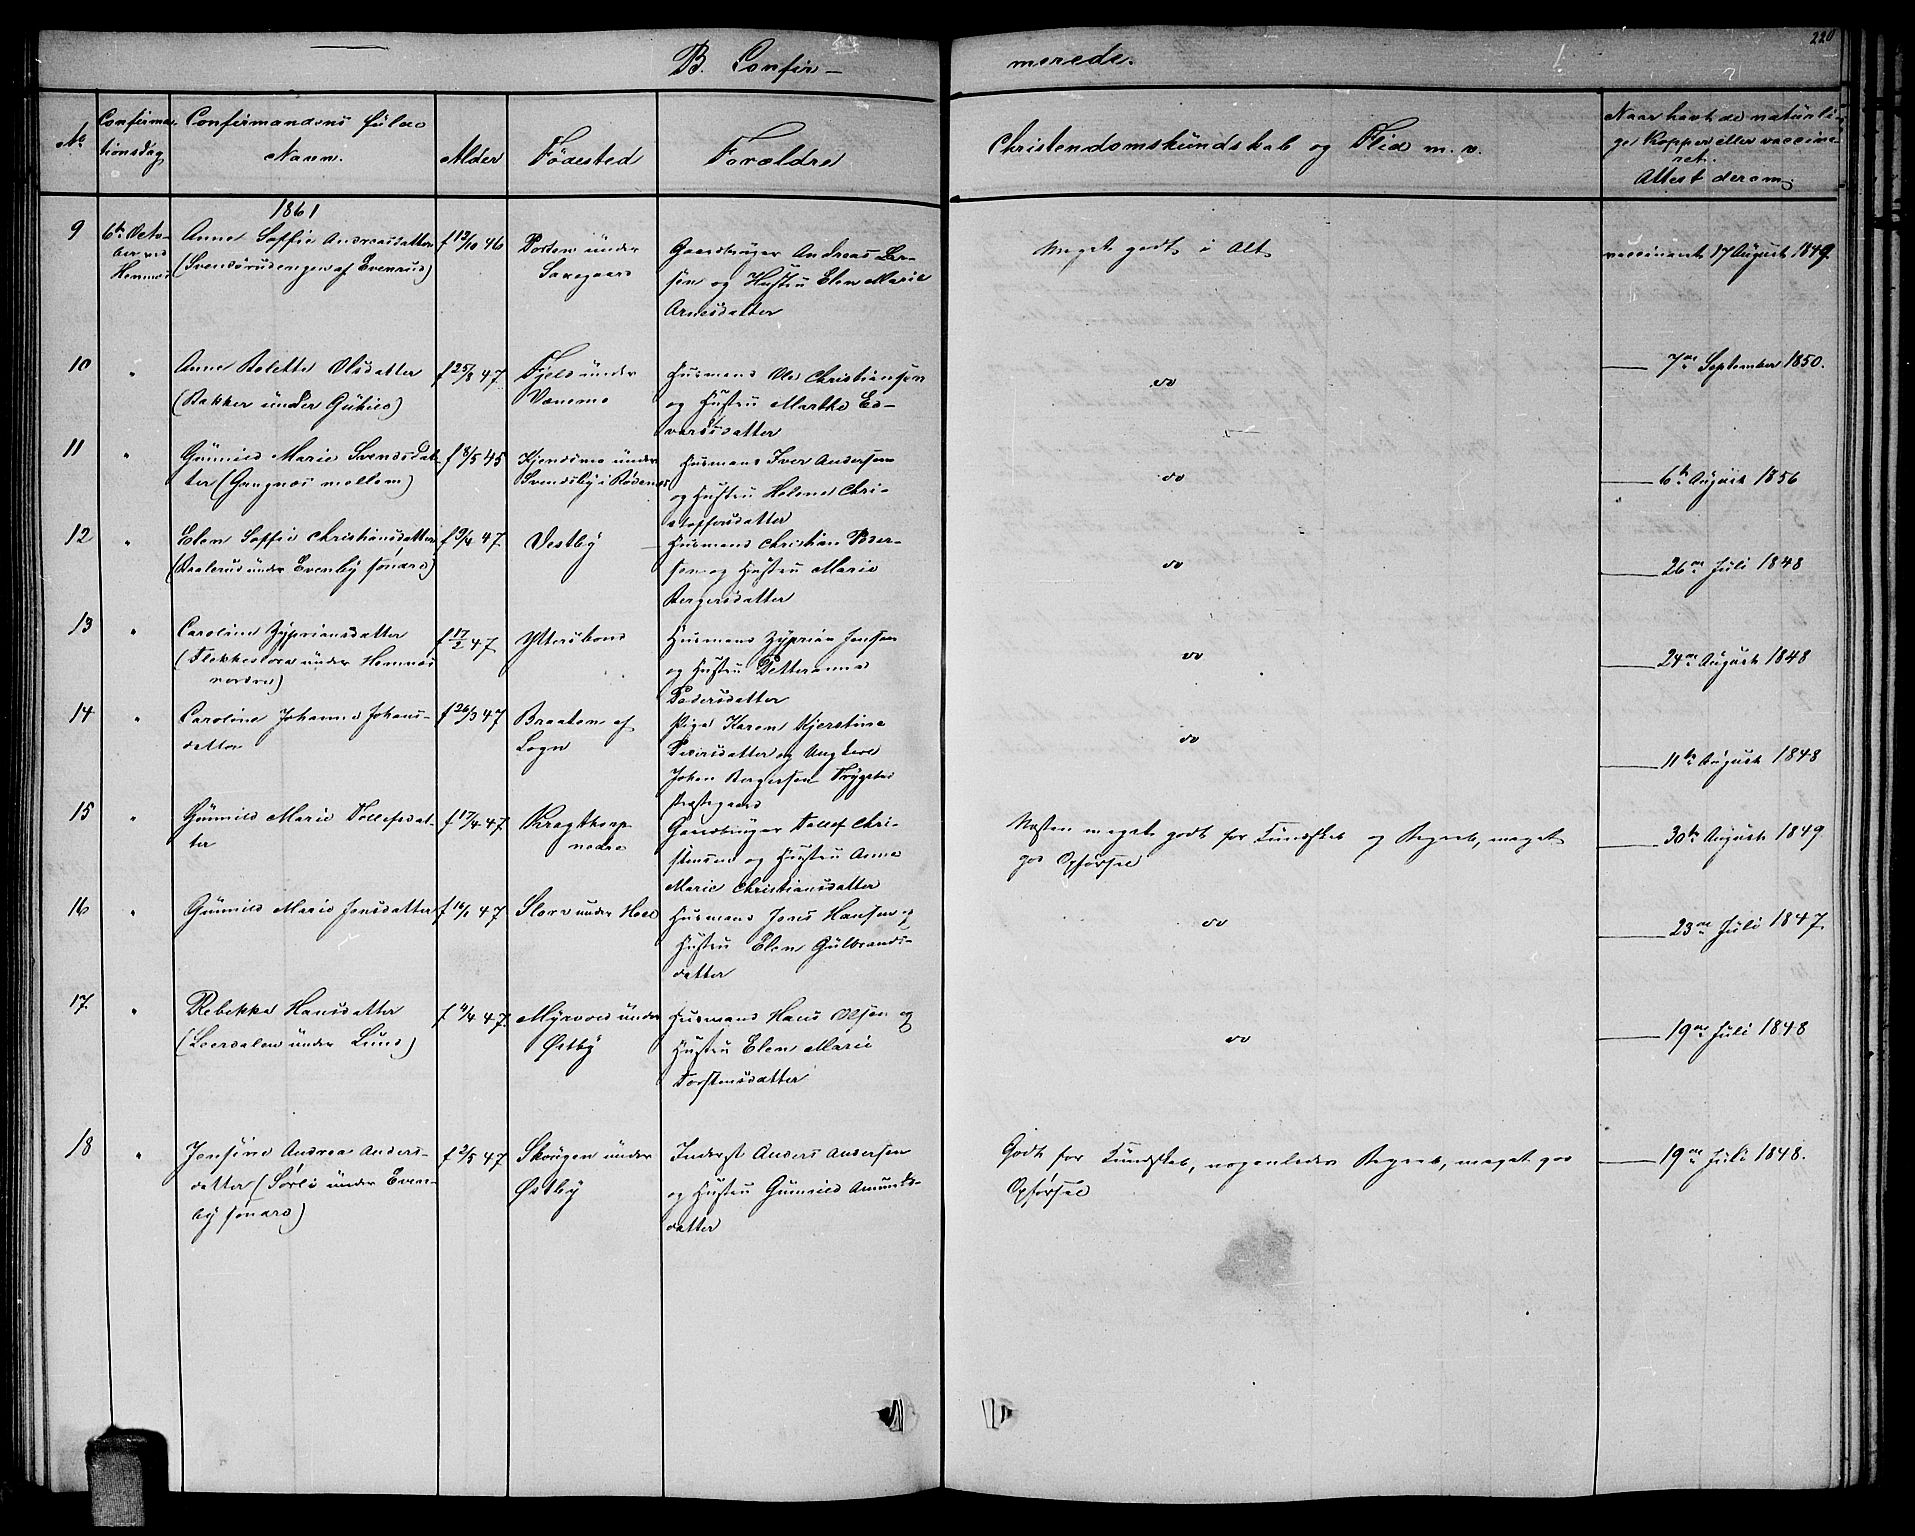 220
B. Confir-
merede.
No
Confirma-
tionsdag
Confirmandens fulde
Navn.
Alder
Födested
Forældre
Christendomskundskab og Flid m. v.
Naar havt de naturli-
ge Kopper eller vaccine-
ret.
Attest derom.
1861
9
6te Octo-
ber ved
Hemnes
Anne Soffie Andreasdatter
(Svendsrudengen af Evenrud)
f 13/10 46
Porten under
Gaardbruger Andreas Lar-
sen og Hustru Elen Marie
Arnesdatter
Meget godt i Alt
vaccineret 17 August 1849
10
"
Anne Bolette Olsdatter
(Bakker under Gukild)
f 25/3 47
Fjeld under
Vanemo
Husmand Ole Christiansen
og Hustru Marthe Ed-
vardsdatter
do
7de September 1850.
11
"
Gunnild Marie Svendsdat-
ter (Gangnæs mellem)
f 8/5 45
Kjendsmo under
Svendsby i Rödenes
Husmand Iver Andersen
og Hustru Helene Chri-
stoffersdatter
do
6te August 1856
12
"
Elen Soffie Christiansdatter
(Braterud under Evenby söndre)
f 9/4 47
Vestby
Husmand Christian Peder-
sen og Hustru Marie
Bergersdatter
do
26de Juli 1848
13
"
Caroline Zypriansdatter
(Flekkeslora under Hemnes
nordre)
f 17/2 47
Ytersbond
Husmand Zyprian Jensen
og Hustru Petteranna
Pedersdatter
do
24de August 1848
14
"
Caroline Johanne Johans-
datter
f 26/3 47
Braaten af
Logn
Pige Karen Kjerstine
Pedersdatter og Ungkarl
Johan Bergersen Trygstad
Præstegaard
do
11te August 1848
15
"
Gunnild Marie Tollefsdat-
ter
f 17/4 47
Kragtorp
nedre
Gaardbruger Tollef Chri-
stensen og Hustru Anne
Marie Christiansdatter
Næsten meget godt for Kundskab og Begreb, meget
god Opförsel
30te August 1849
16
"
Gunnild Marie Jensdatter
f 16/1 47
Slorv under Hoel
Husmand Jens Hansen og
Hustru Elen Gulbrands-
datter
do
23de Juli 1847
17.
"
Rebekka Hansdatter
(Leerdalen under Lund)
f 11/4 47
Myrvold under
Östby
Husmand Hans Olsen og
Hustru Elen Marie
Torstensdatter
do
19de Juli 1848
18
"
Jensine Andrea Anders-
datter (Sörli under Even-
by söndre)
f 2/5 47
Skougen under
Östby
Inderst Anders Andersen
og Hustru Gunnild Amunds-
datter
Godt for Kundskab, nogenledes Begreb, meget god
Opförsel
19de Juli 1848.